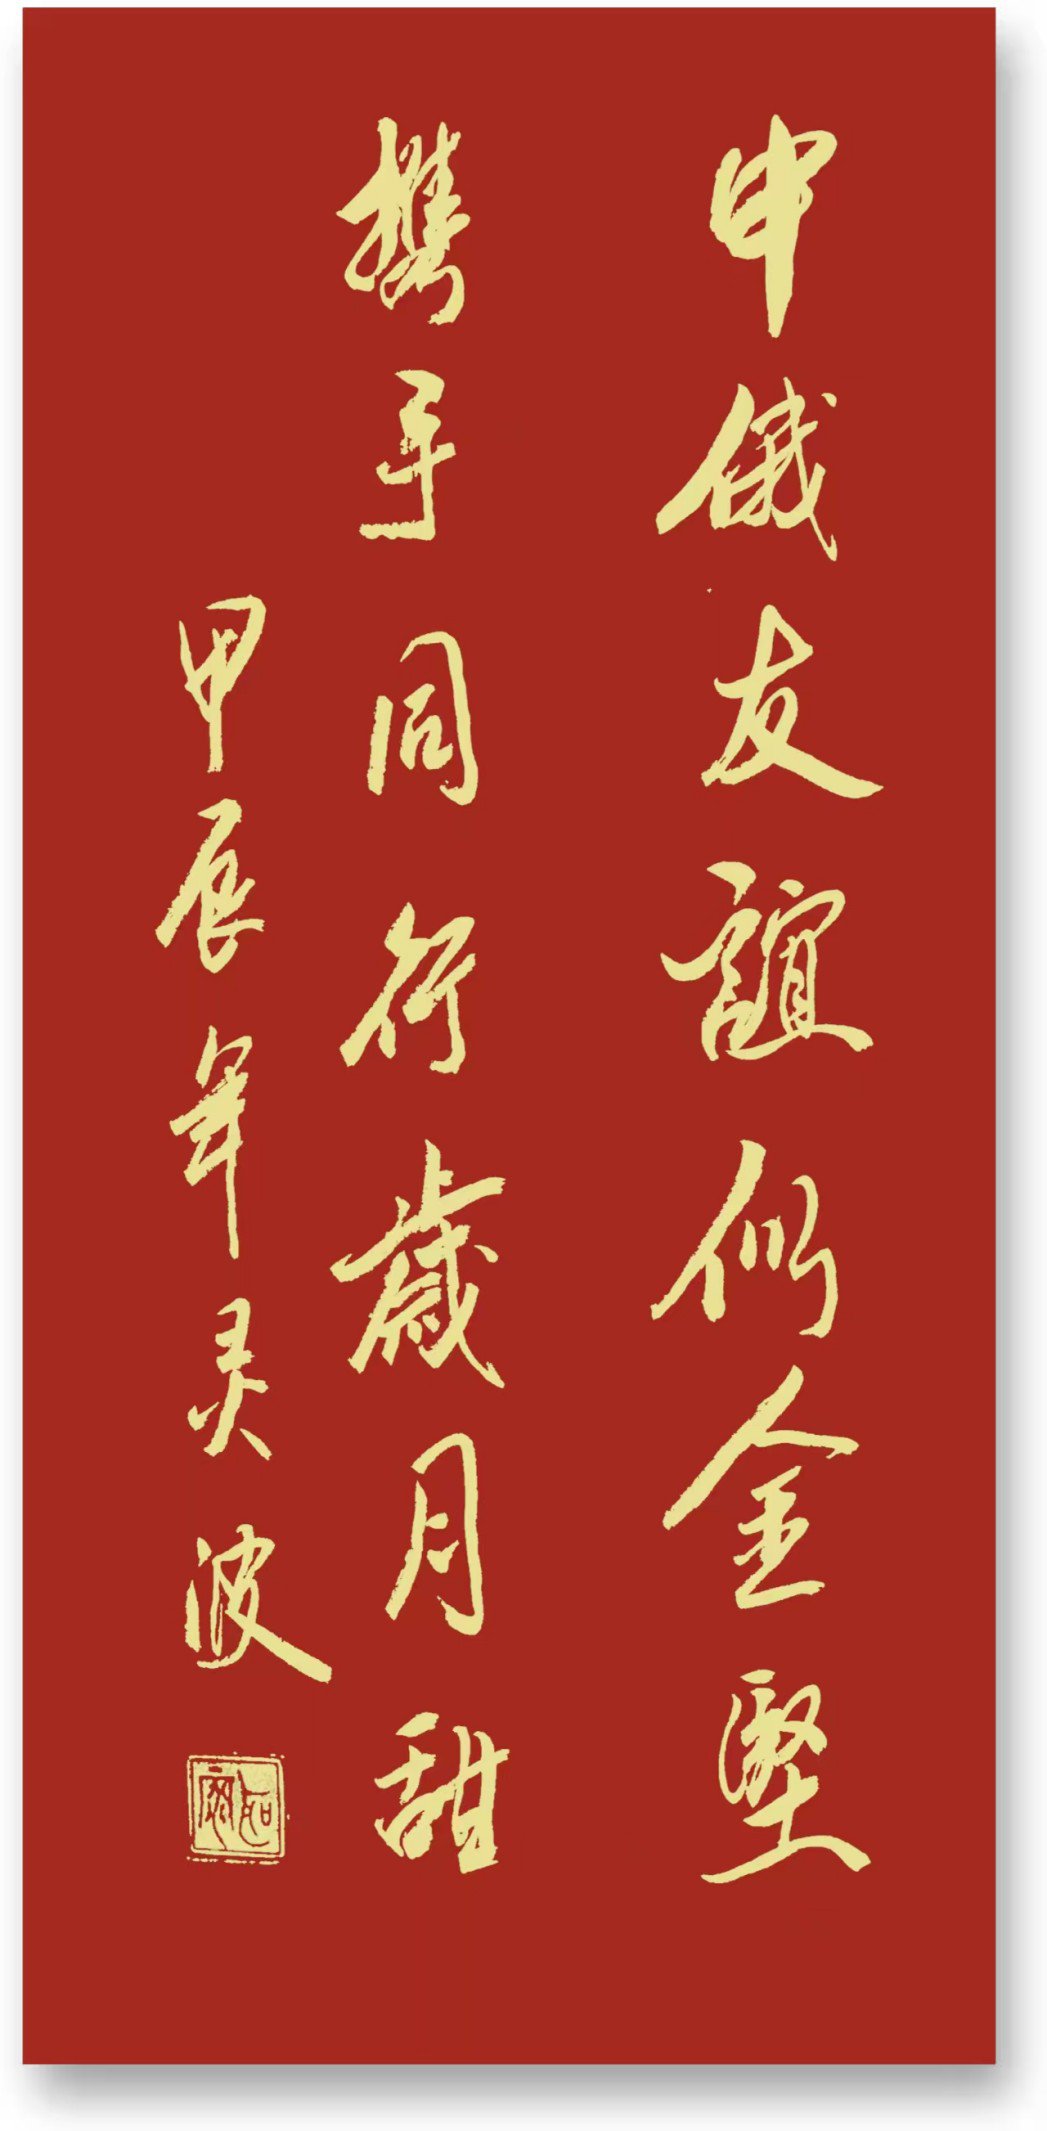 中俄友誼似金堅
携手同行歲月甜
甲辰年灵波